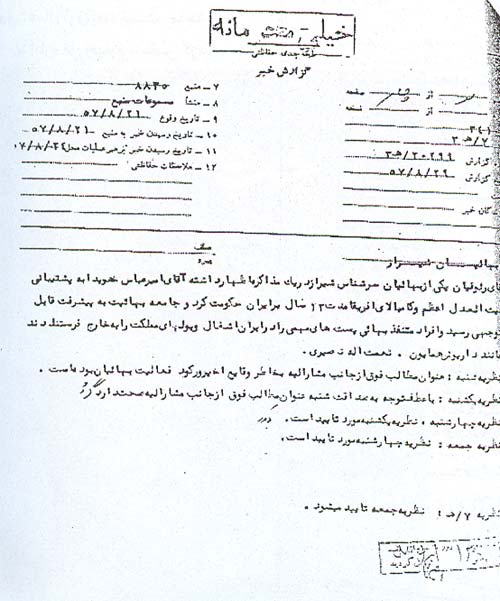 خیلی محرمانه
طبقه‌بندی حفاظتی
گزارش خبر
از صفحه
از نسخه
۷ – منبع ۸۸۳۵
۸ – منشأ مسموعات منبع
۹ – تاریخ وقوع ۵۷/۸/۲۱
۱۰ – تاریخ رسیدن خبر به منبع ۵۷/۸/۲۱
۱۱ – تاریخ رسیدن خبر برهبر عملیات محل
۱۲ – ملاحظات حفاظتی
۷/هـ ۳
گزارش ۲۰۲۹۹/هـ۳
گزارش ۵۷/۸/۲۹
خبر
بهائیان شیراز
یکی از بهائیان سرشناس شیراز در یک مذاکره اظهار داشته آقای امیرعباس هویدا به پشتیبانی
بیت العدل اعظم و کامیالای افریقا مدت ۱۳ سال بر ایران حکومت کرد و جامعه بهائیت به پیشرفت قابل
توجهی رسید و افراد متنفذ بهائی پست های مهمی را در ایران اشغال و پول های مملکت را به خارج فرستادند
مانند هما یون . نعمت اله نصیری .
نظریه شنبه : عنوان مطالب فوق از جانب مشارالیه بخاطر وقایع اخیر و رکود فعالیت بهائیان بوده است .
نظریه یکشنبه : با عطف توجه به صداقت شنبه عنوان مطالب فوق از جانب مشارالیه صحت دارد
نظریه چهارشنبه . نظریه یکشنبه مورد تایید است .
نظریه جمعه : نظریه چهارشنبه مورد تایید است .
نظریه ۷/هـ : نظریه جمعه تایید میشود .